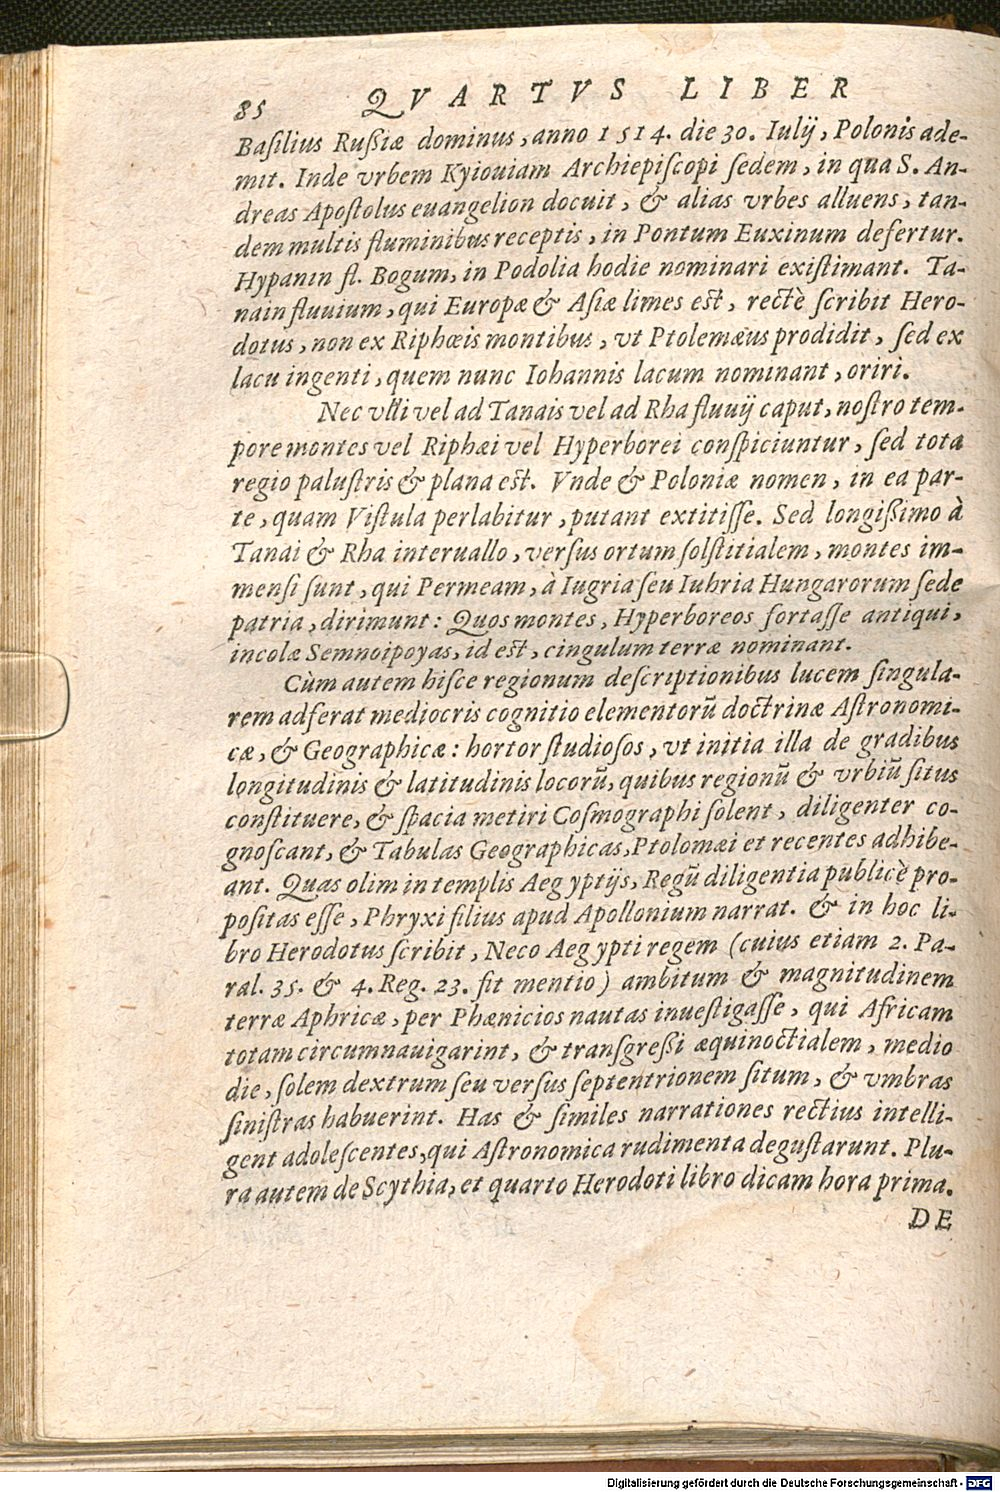 85 QVARTVS LIBER
Baſilius Ruſsiæ dominus, anno 1514. die 30. Iulij, Polonis ade-
mit. Inde vrbem Kyiouiam Archiepiſcopi ſedem, in qua S. An-
dreas Apoſtolus euangelion docuit, & alias vrbes alluens, tan-
dem multis fluminibus receptis, in Pontum Euxinum defertur.
Hypanin fl. Bogum, in Podolia hodie nominari exiſtimant. Ta-
nain fluuium, qui Europæ & Aſiæ limes est, rectè ſcribit Hero-
dotus, non ex Riphœis montibus, vt Ptolemæus prodidit, ſed ex
lacu ingenti, quem nunc Iohannis lacum nominant, oriri.
Nec vlli vel ad Tanais vel ad Rha fluuij caput, noſtro tem-
pore montes vel Riphæi vel Hyperborei conſpiciuntur, ſed tota
regio paluſtris & plana est. Vnde & Poloniæ nomen, in ea par-
te, quam Viſtula perlabitur, putant extitiſſe. Sed longißimo à
Tanai & Rha interuallo, verſus ortum ſolſtitialem, montes im-
menſi ſunt, qui Permeam, à Iugria ſeu Iuhria Hungarorum ſede
patria, dirimunt: Quos montes, Hyperboreos fortaſſe antiqui,
incolæ Semnoipoyas, id est, cingulum terræ nominant.
Cùm autem hiſce regionum deſcriptionibus lucem ſingula-
rem adferat mediocris cognitio elementorũ doctrinæ Aſtronomi-
cæ, & Geographicæ: hortor ſtudioſos, vt initia illa de gradibus
longitudinis & latitudinis locorũ, quibus regionũ & vrbiũ ſitus
conſtituere, & ſpacia metiri Coſmographi ſolent, diligenter co-
gnoſcant, & Tabulas Geographicas, Ptolomæi et recentes adhibe-
ant. Quas olim in templis Aegyptijs, Regũ diligentia publicè pro-
poſitas eſſe, Phryxi filius apud Apollonium narrat. & in hoc li-
bro Herodotus ſcribit, Neco Aegypti regem (cuius etiam 2. Pa-
ral. 35. & 4. Reg. 23. fit mentio) ambitum & magnitudinem
terræ Aphricæ, per Phœnicios nautas inueſtigaſſe, qui Africam
totam circumnauigarint, & transgreßi æquinoctialem, medio
die, ſolem dextrum ſeu verſus ſeptentrionem ſitum, & vmbras
ſiniſtras habuerint. Has & ſimiles narrationes rectius intelli-
gent adoleſcentes, qui Aſtronomica rudimenta deguſtarunt. Plu-
ra autem de Scythia, et quarto Herodoti libro dicam hora prima.
DE
Digitalisierung gefördert durch die Deutsche Forschungsgemeinschaft - DFG